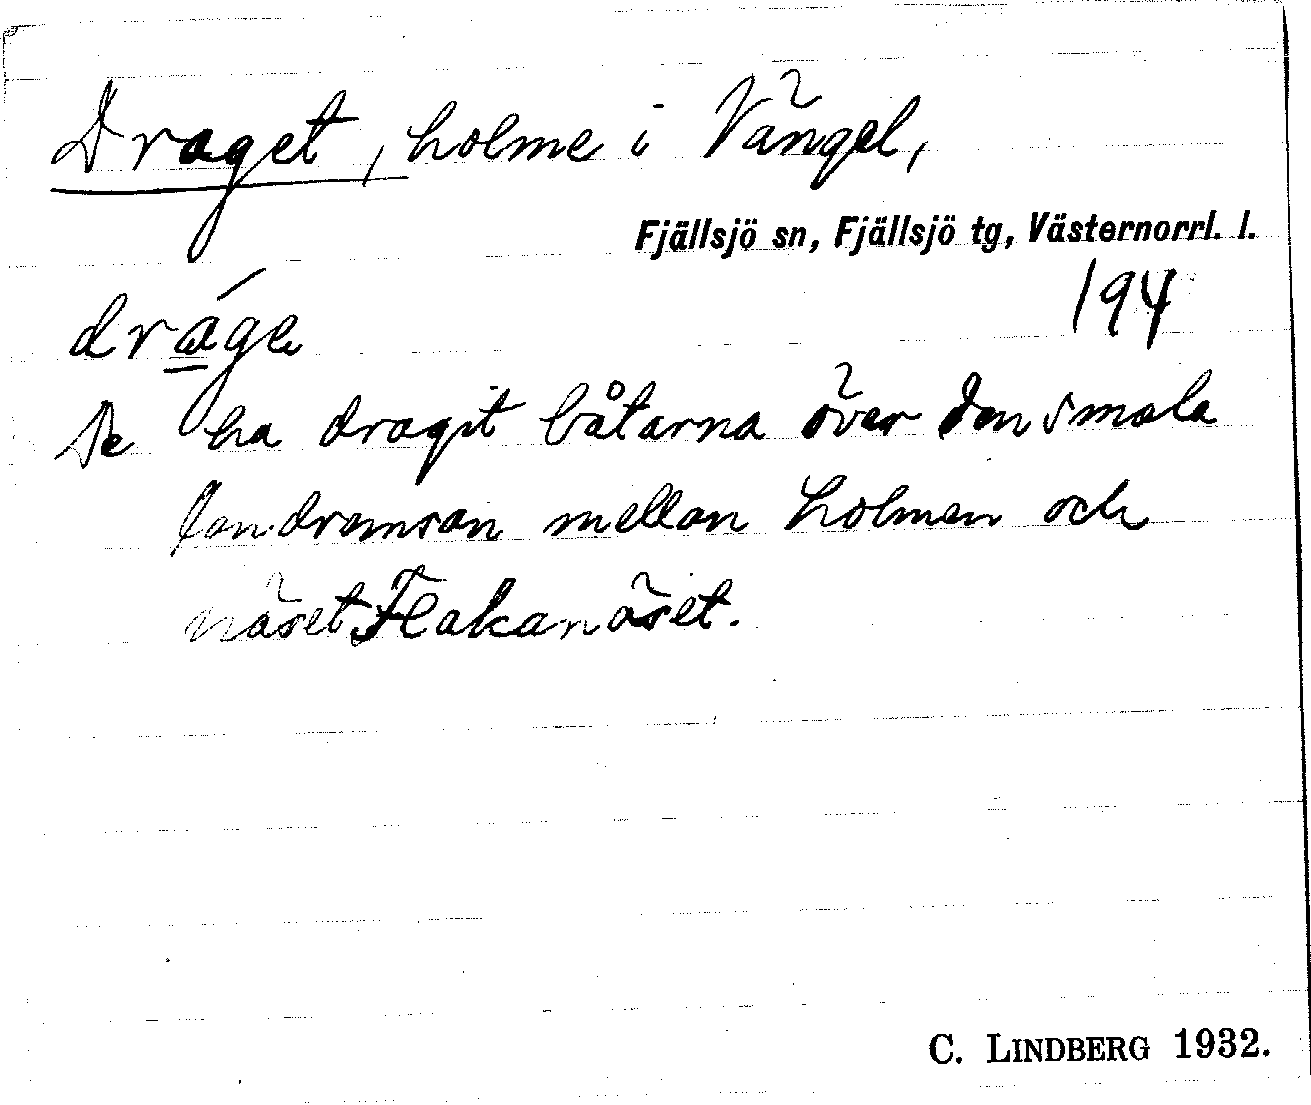 Draget, holme i Vängel,
Fjällsjö sn, Fjällsjö tg, Västernorrl. l.
194
dráge
De ha dragit båtarna över den smala
landremsan mellan holmen och
näset Flakanäset.
C. LINDBERG 1932.